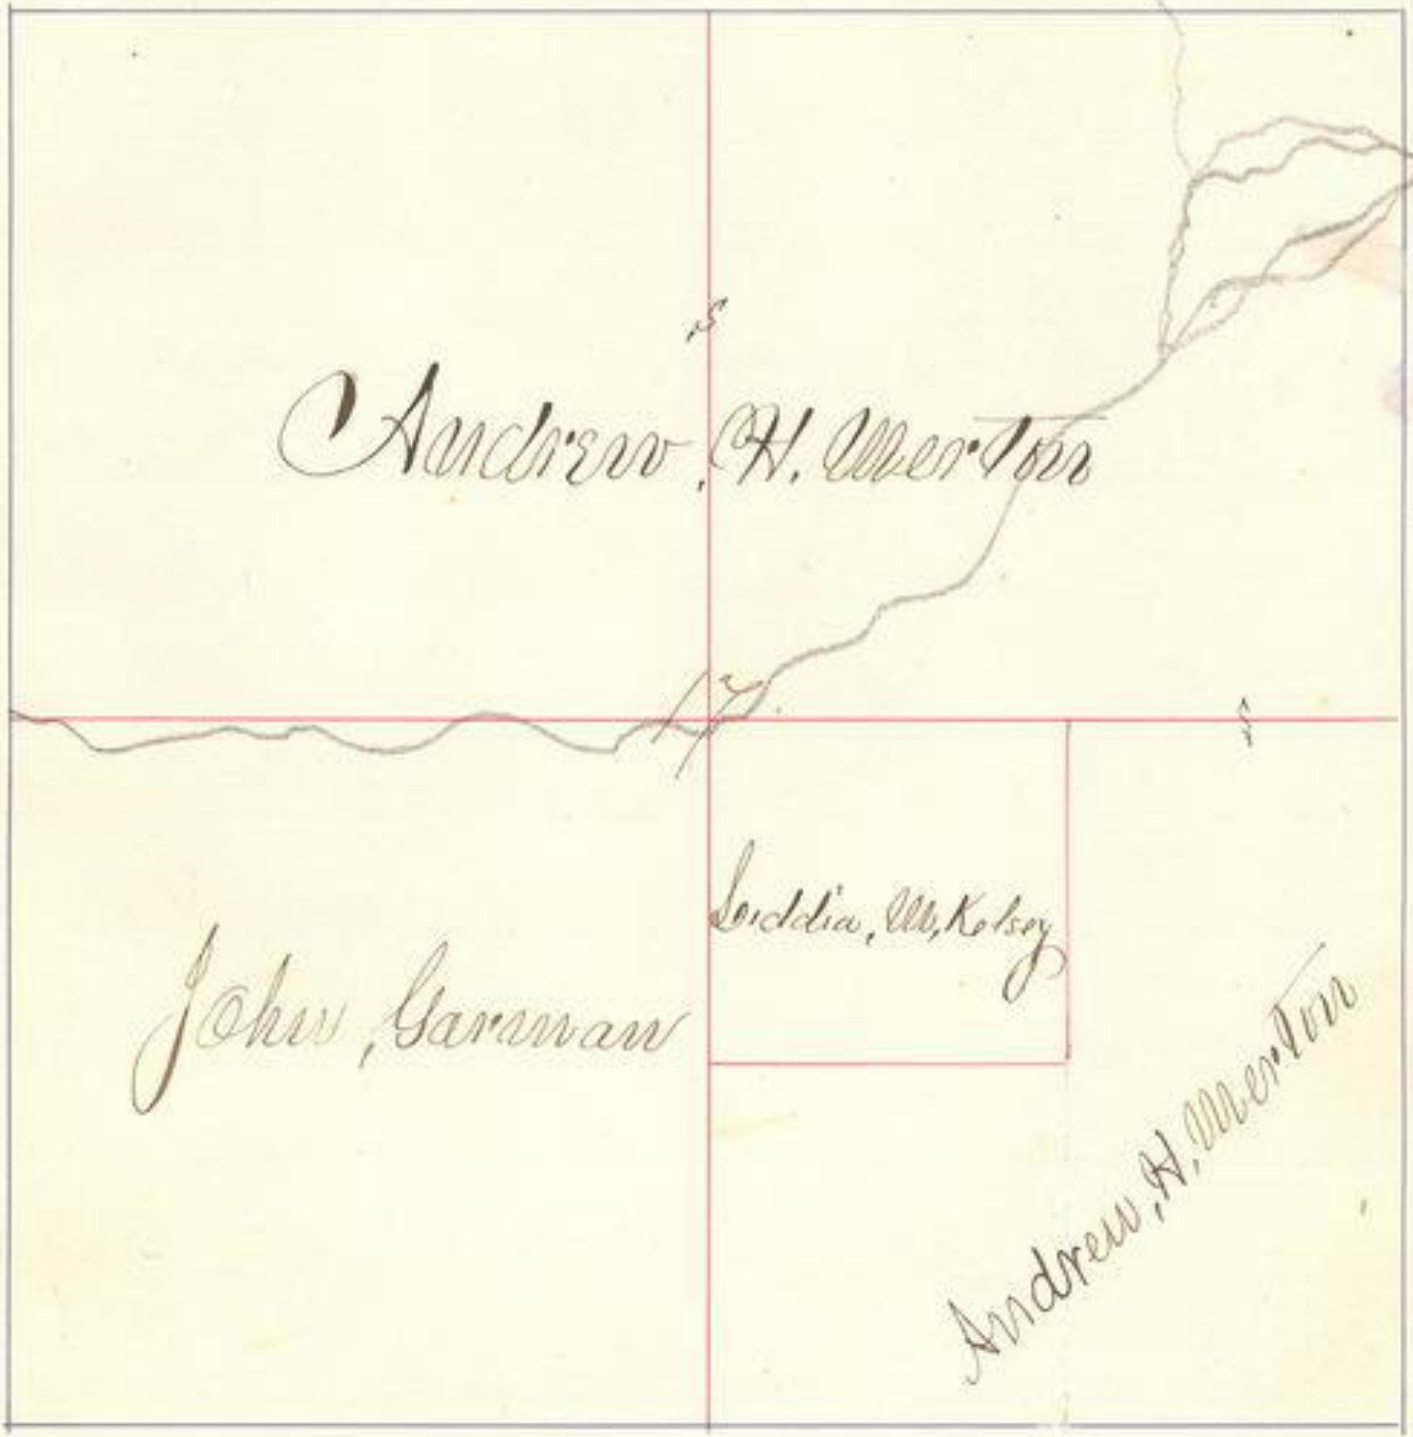 Andrew, H. Merton
17.
Liddia, M, Kelsey
John, Garman
Andrew, H, Merton